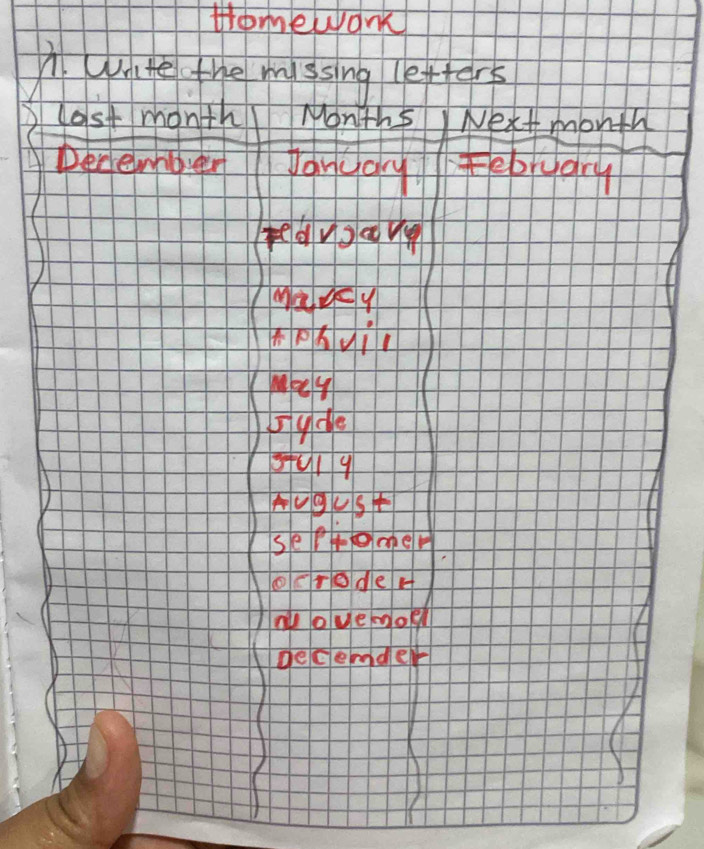 Homework
1. Write the missing letters
Last month Months Next month
December January February
Fedvjavy
Marcy
Aphvil
May
Jyde
July
August
Septomer
Octoder
Novemoer
Decemder